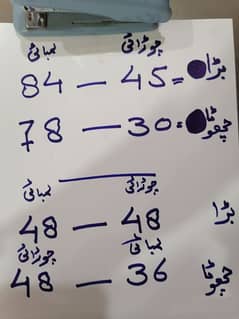 لمبائی چوڑائی
84 — 45 = بڑا
78 — 30 = چھوٹا
لمبائی چوڑائی
48 — 48 بڑا
چوڑائی لمبائی
48 — 36 چھوٹا